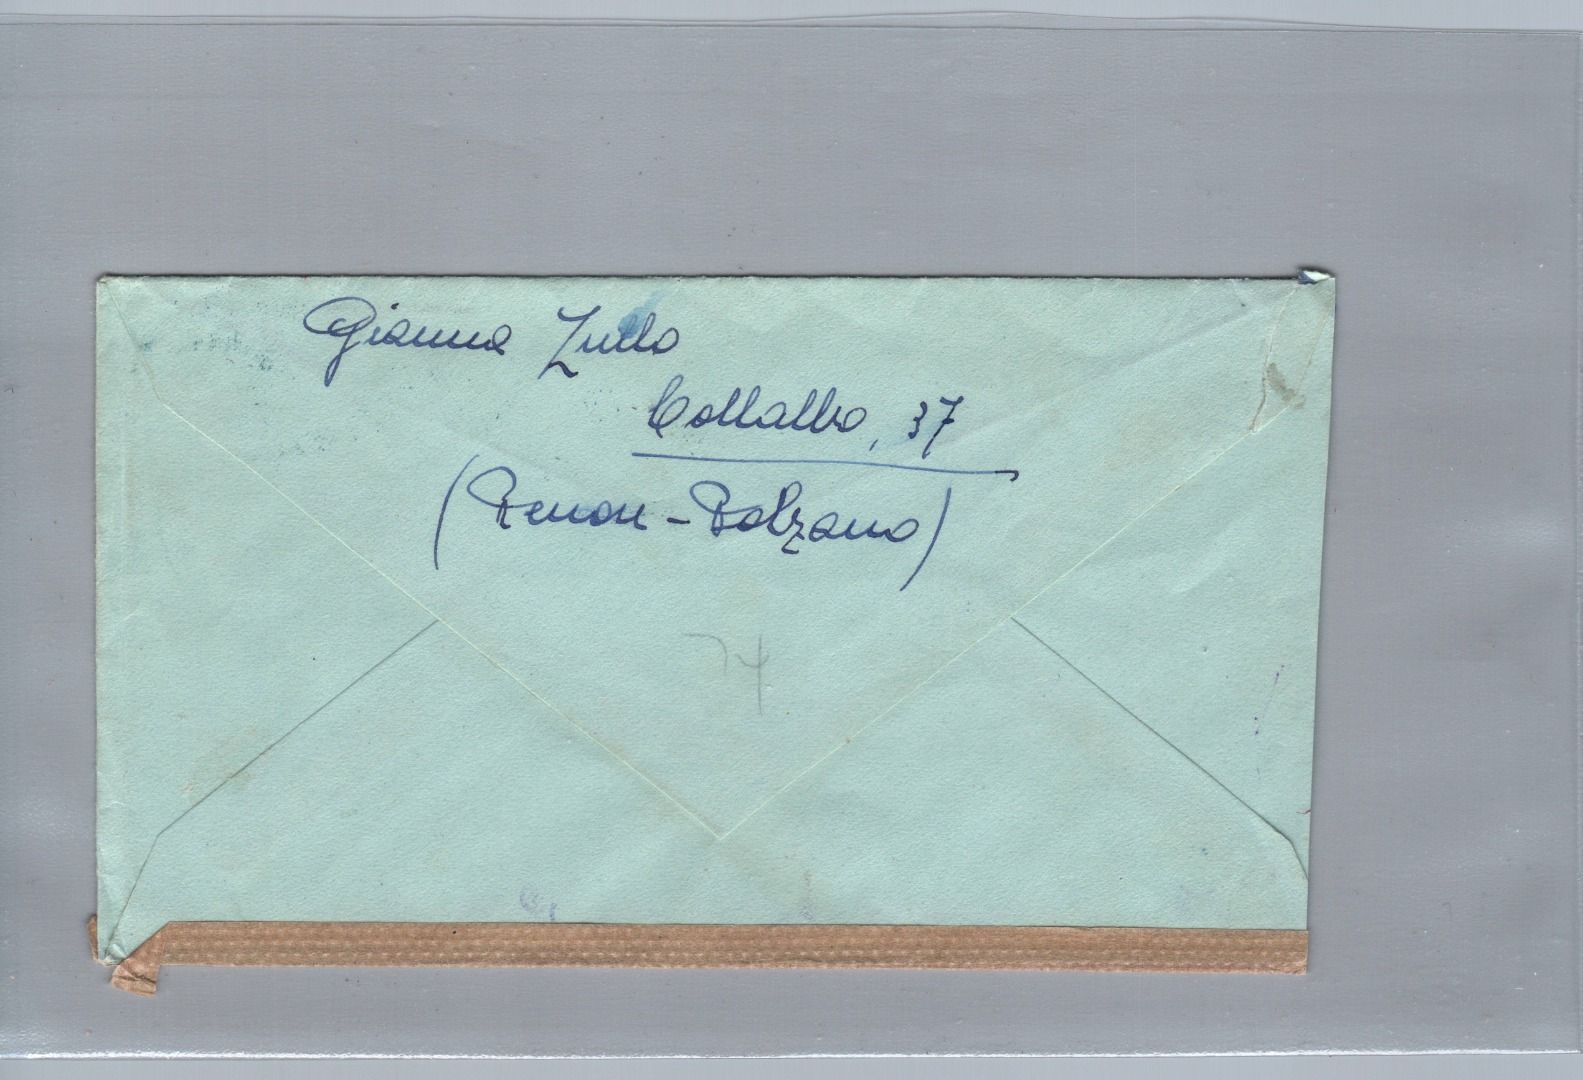 Gianna Zullo
Collalbo, 37
(Renon - Bolzano)
74